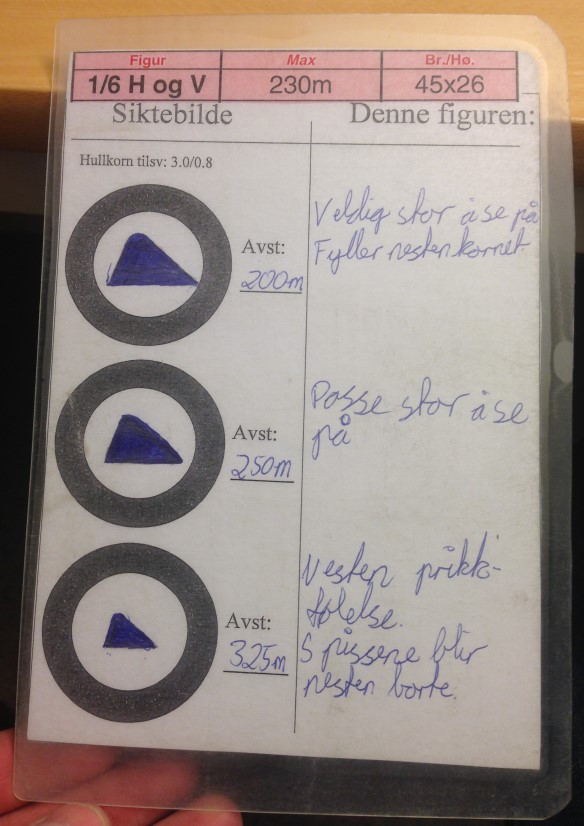 Figur Max Br./Hø.
1/6 H og V 230m 45x26
Siktebilde Denne figuren:
Hullkorn tilsv: 3.0/0.8
Veldig stor å se på
Fyller nesten kornet
Avst:
200m
Passe stor å se
på
Avst:
250m
Nesten prikk-
følelse.
Spissene blir
nesten borte.
Avst:
325m